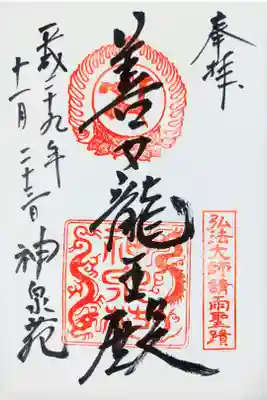 奉拝
弘法大師請雨聖蹟
善女龍王殿
平成二十九年
十一月二十三日
神泉苑